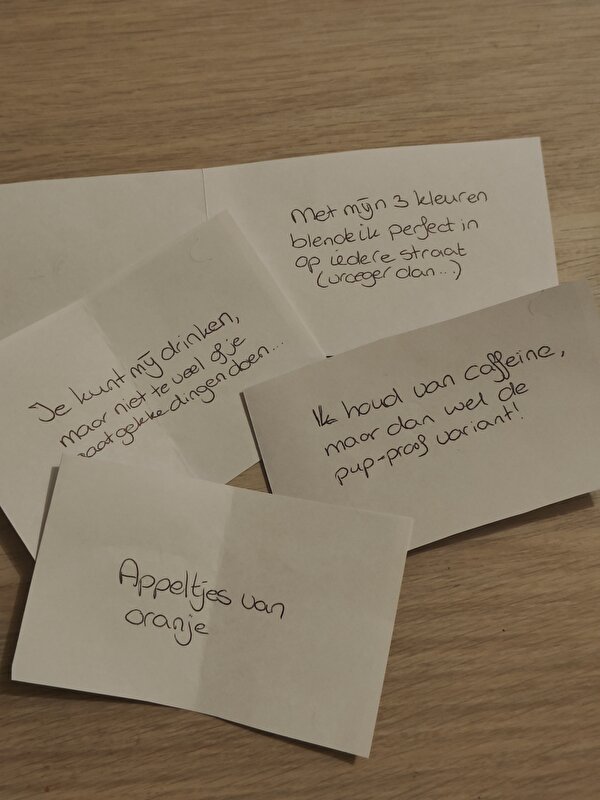 Met mijn 3 kleuren
blend ik perfect in
op iedere straat
(vroeger dan...)
Je kunt mij drinken,
maar niet te veel of je
gaat gekke dingen doen...
Ik houd van caffeïne,
maar dan wel de
pup-proof variant!
Appeltjes van
oranje